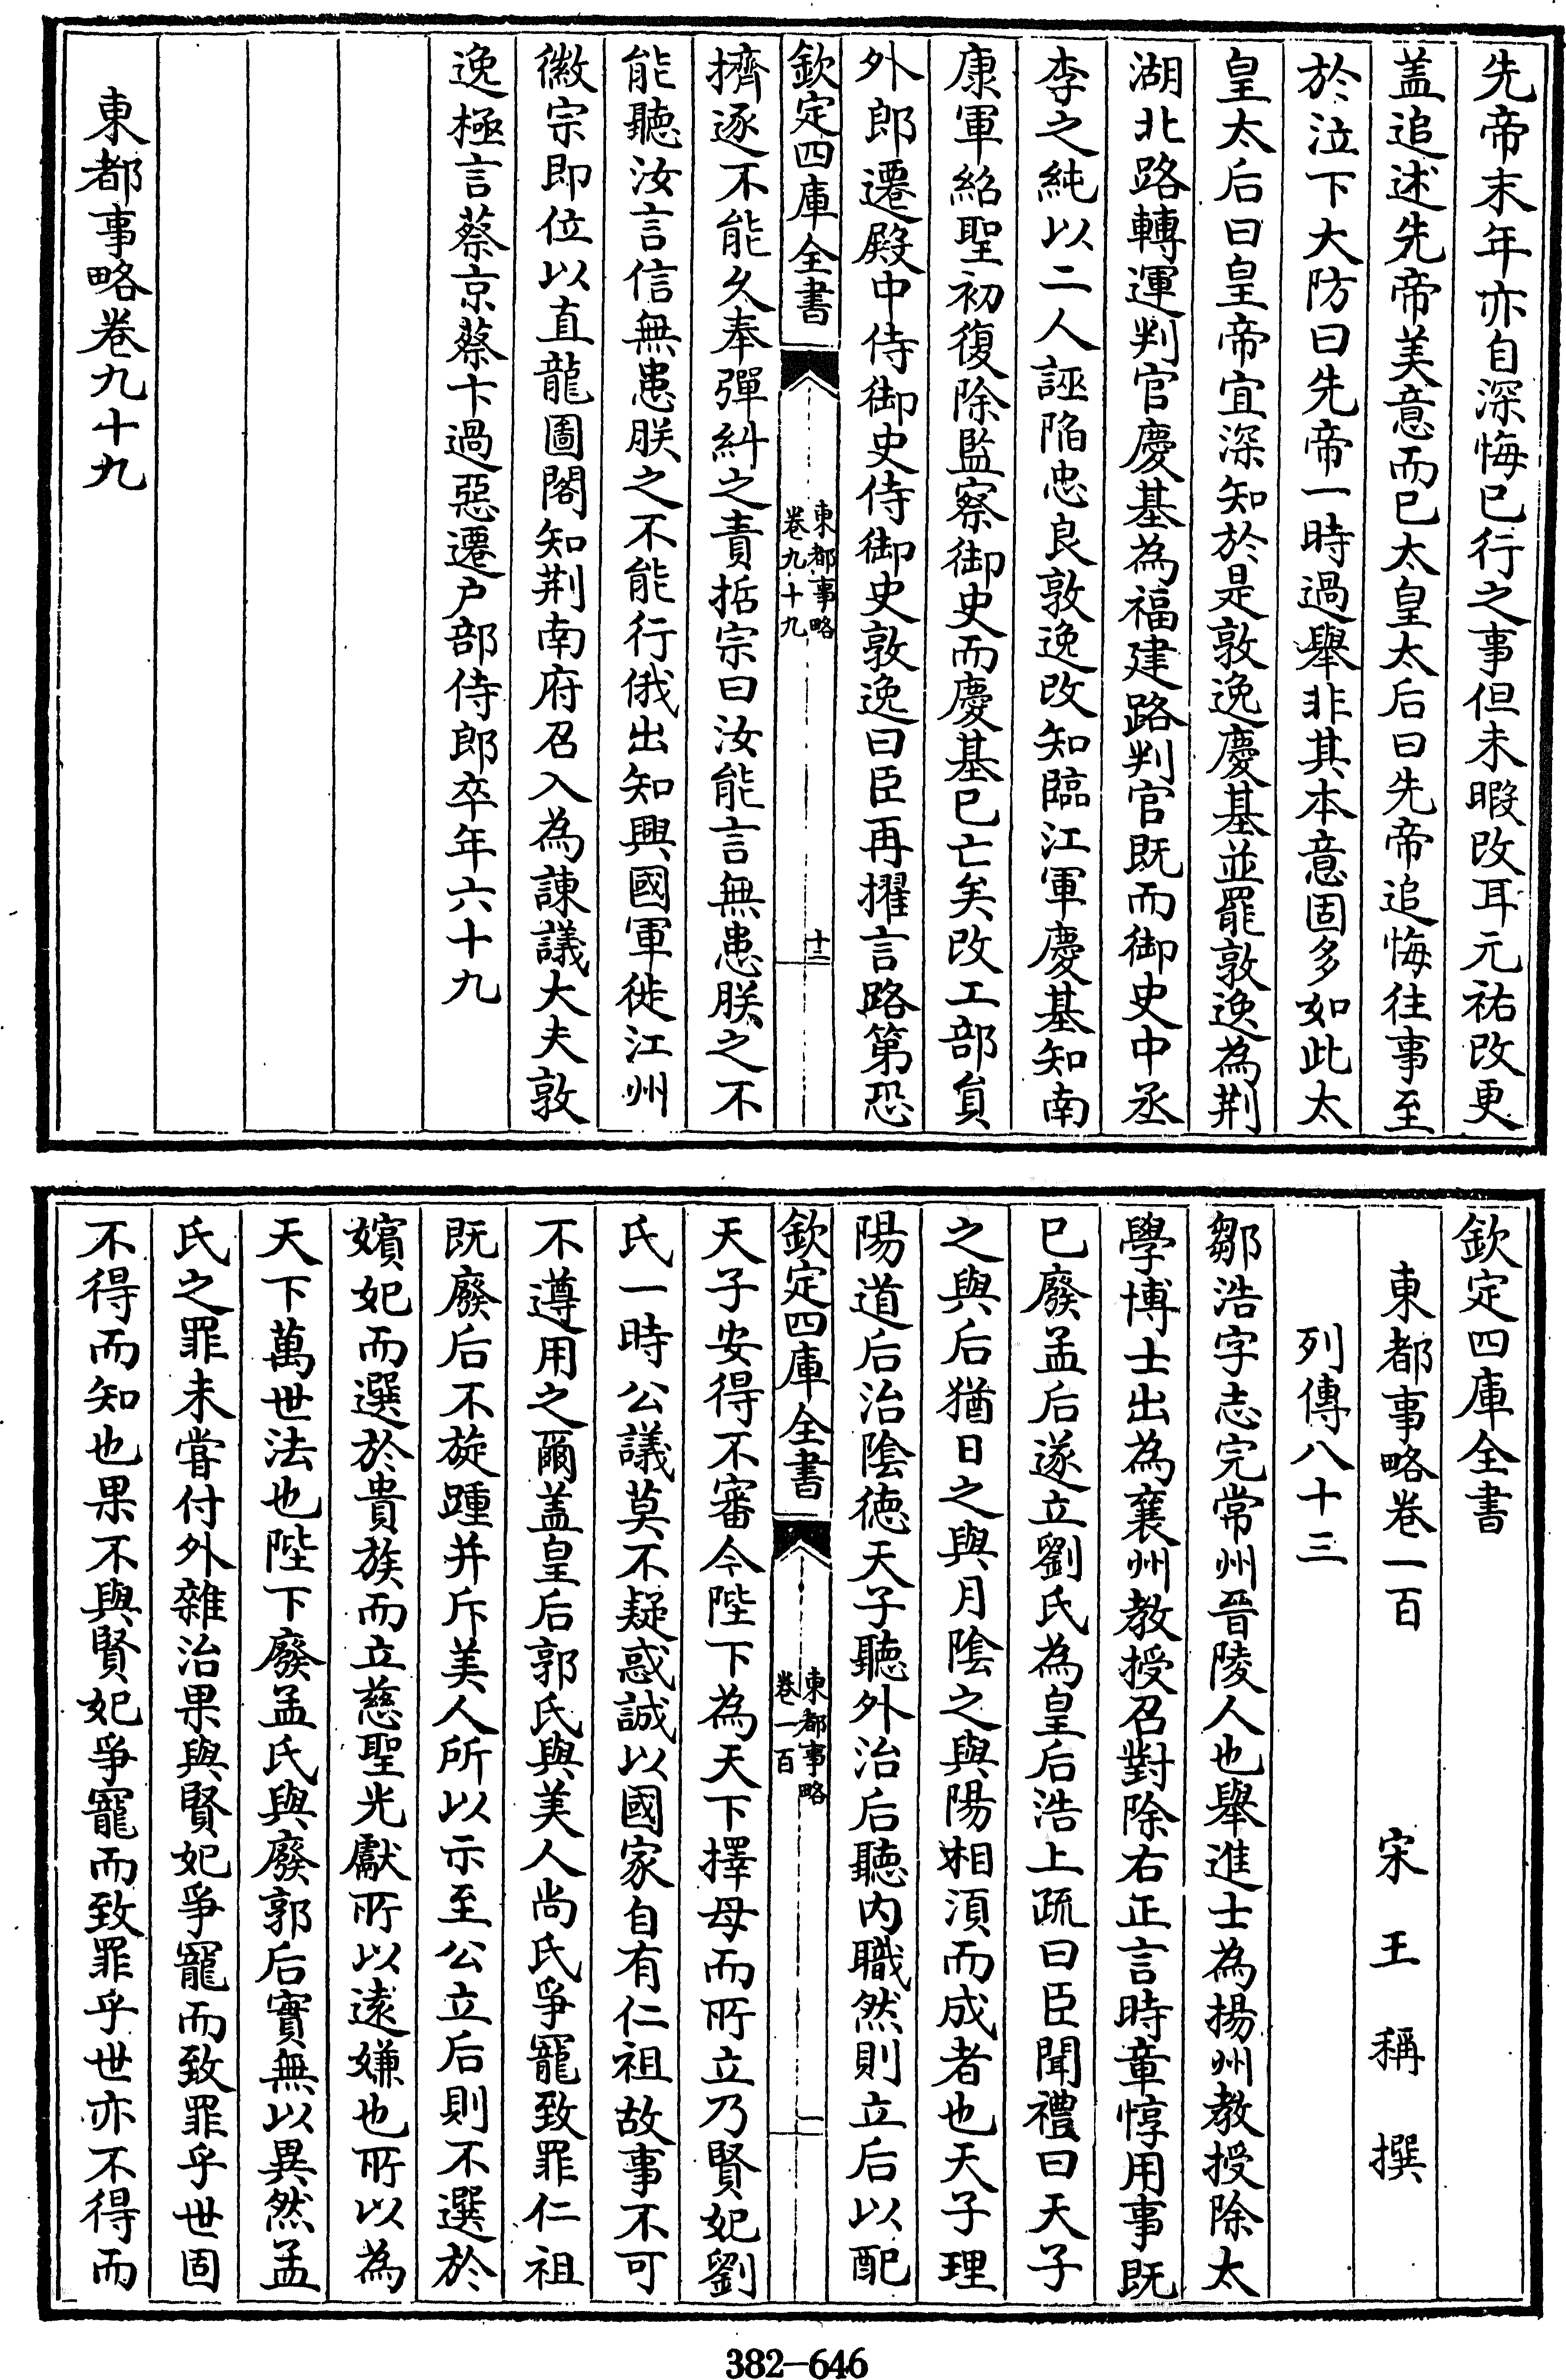 先帝末年亦自深悔已行之事但未暇改耳元祐改更
盖追述先帝美意而已太皇太后曰先帝追悔往事至
於泣下大防曰先帝一時過舉非其本意固多如此太
皇太后曰皇帝宜深知於是敦逸慶基並罷敦逸為荆
湖北路轉運判官慶基為福建路判官既而御史中丞
李之純以二人誣陷忠良敦逸改知臨江軍慶基知南
康軍紹聖初復除監察御史而慶基已亡矣改工部員
外郎遷殿中侍御史侍御史敦逸曰臣再擢言路第恐
欽定四庫全書
東都事略
卷九十九
十二
擠逐不能久奉彈糾之責哲宗曰汝能言無患朕之不
能聽汝言信無患朕之不能行俄出知興國軍徙江州
徽宗即位以直龍圖閣知荆南府召入為諫議大夫敦
逸極言蔡京蔡卞過惡遷户部侍郎卒年六十九
東都事略卷九十九
欽定四庫全書
東都事略卷一百
宋王稱撰
列傳八十三
鄒浩字志完常州晉陵人也舉進士為揚州教授除太
學博士出為襄州教授召對除右正言時章惇用事既
已廢孟后遂立劉氏為皇后浩上疏曰臣聞禮曰天子
之與后猶日之與月陰之與陽相須而成者也天子理
陽道后治陰徳天子聽外治后聽内職然則立后以配
欽定四庫全書
東都事略
卷一百
一
天子安得不審今陛下為天下擇母而所立乃賢妃劉
氏一時公議莫不疑惑誠以國家自有仁祖故事不可
不遵用之爾盖皇后郭氏與美人尚氏爭寵致罪仁祖
既廢后不旋踵并斥美人所以示至公立后則不選於
嬪妃而選於貴族而立慈聖光獻所以逺嫌也所以為
天下萬世法也陛下廢孟氏與廢郭后實無以異然孟
氏之罪未甞付外雜治果與賢妃爭寵而致罪乎世固
不得而知也果不與賢妃爭寵而致罪乎世亦不得而
382-646